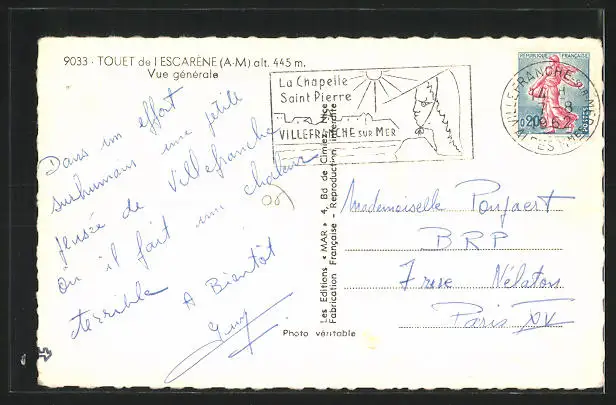 9033 - TOUET de l ESCARÈNE (A-M) alt. 445 m.
Vue générale
Dans un effort
surhumain une petite
pensée de Villefranche
Où il fait une chaleur
terrible
A Bientôt
Guy
La Chapelle
Saint Pierre
VILLEFRANCHE SUR MER
RÉPUBLIQUE FRANÇAISE
0,20
POSTES
VILLEFRANCHE S MER
14 H
7 - 8
1962
ALPES MMES
Les Editions « MAR » 4, Bd de Cimiez, Nice
Fabrication Française - Reproduction interdite
Mademoiselle
B R P
7 rue Nélaton
Paris XV
Photo véritable